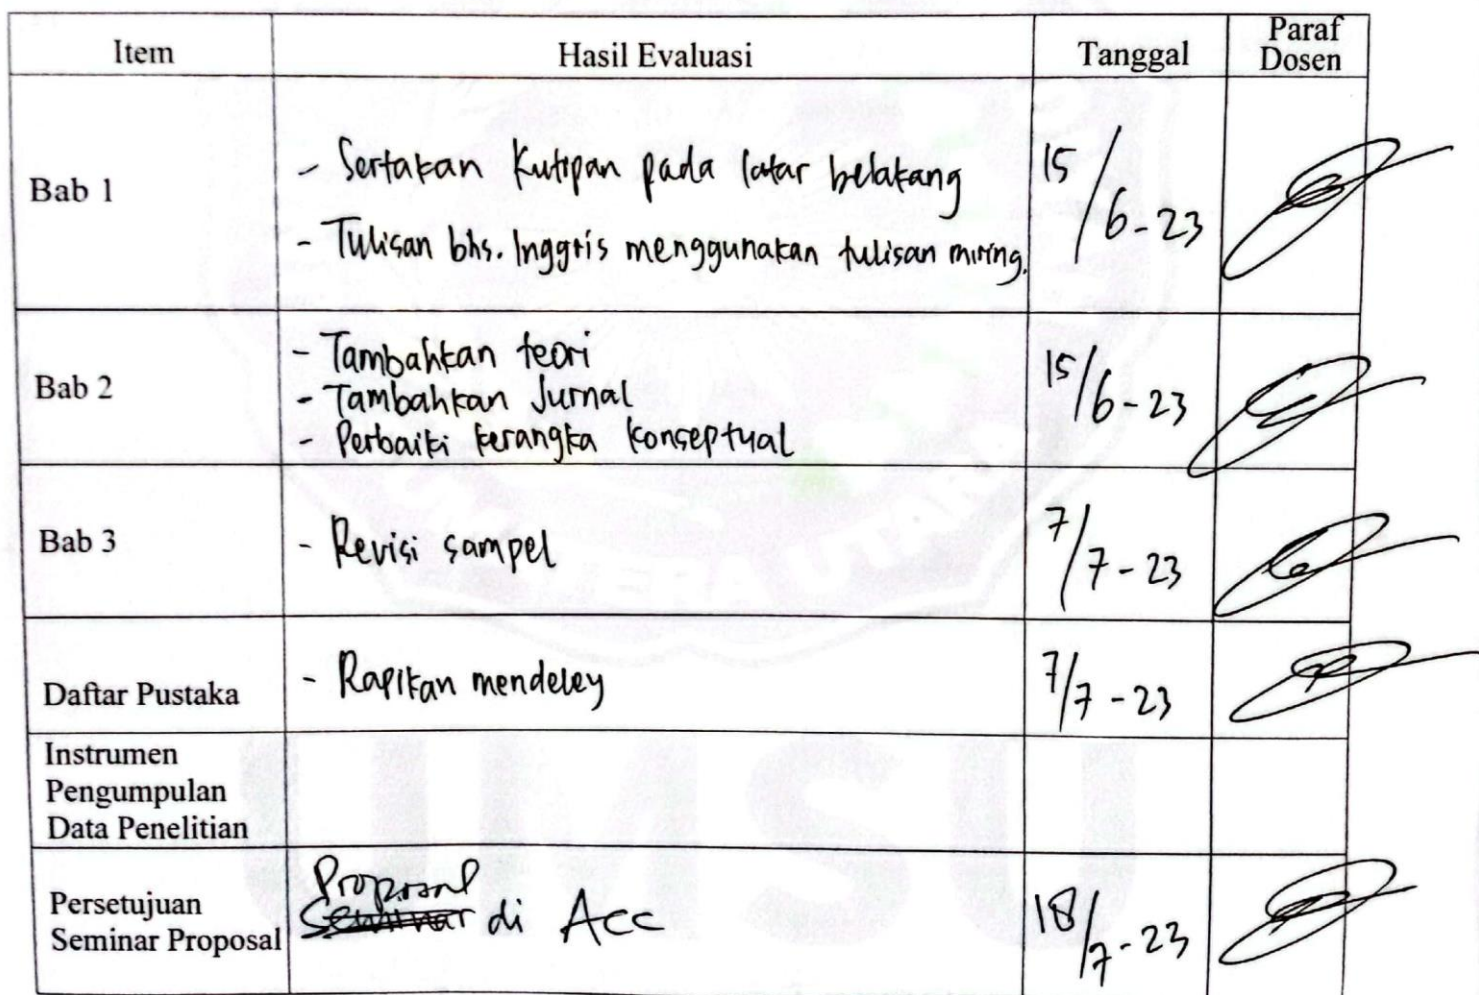 Item Hasil Evaluasi Tanggal Paraf Dosen
Bab 1
- Sertakan Kutipan pada latar belakang
- Tulisan bhs. Inggris menggunakan tulisan miring.
15/6-23
Bab 2
- Tambahkan teori
- Tambahkan Jurnal
- Perbaiki kerangka konseptual
15/6-23
Bab 3
- Revisi sampel
7/7-23
Daftar Pustaka
- Rapikan mendeley
7/7-23
Instrumen
Pengumpulan
Data Penelitian
Persetujuan
Seminar Proposal
Proposal
Seminar di Acc
18/7-23
UMSU